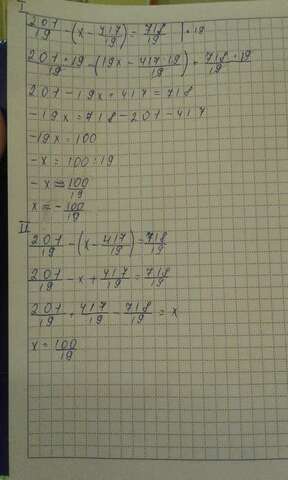 I
207/19 - (x - 417/19) = 718/19 | · 19
207/19 · 19 - (19x - 417·19/19) = 718/19 · 19
207 - 19x = 417 = 718
-19x = 718 - 207 - 417
-19x = 100
-x = 100 : 19
-x = 100/19
x = - 100/19
II
207/19 - (x - 417/19) = 718/19
207/19 - x + 417/19 = 718/19
207/19 + 417/19 - 718/19 = x
x = 100/19